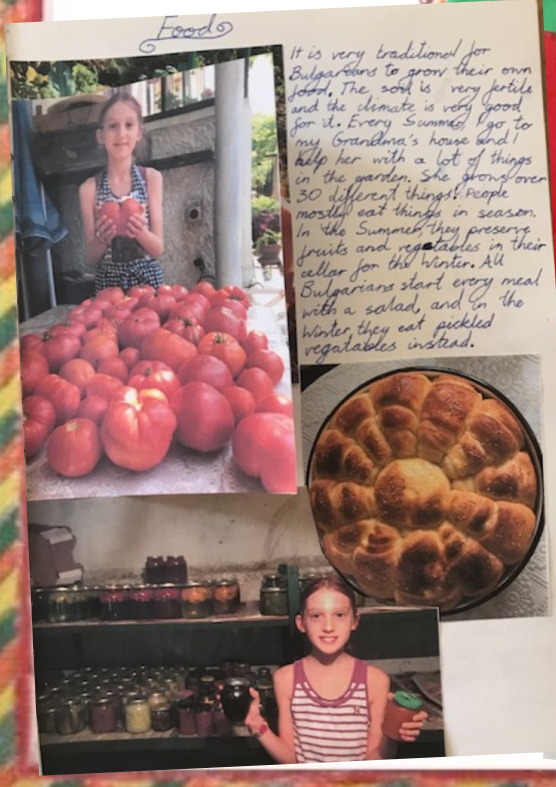 Food
It is very traditional for
Bulgarians to grow their own
food. The soil is very fertile
and the climate is very good
for it. Every Summer, I go to
my Grandma's house and I
help her with a lot of things
in the garden. She grows over
30 different things! People
mostly eat things in season.
In the Summer, they preserve
fruits and vegetables in their
cellar for the Winter. All
Bulgarians start every meal
with a salad, and in the
Winter, they eat pickled
vegatables instead.